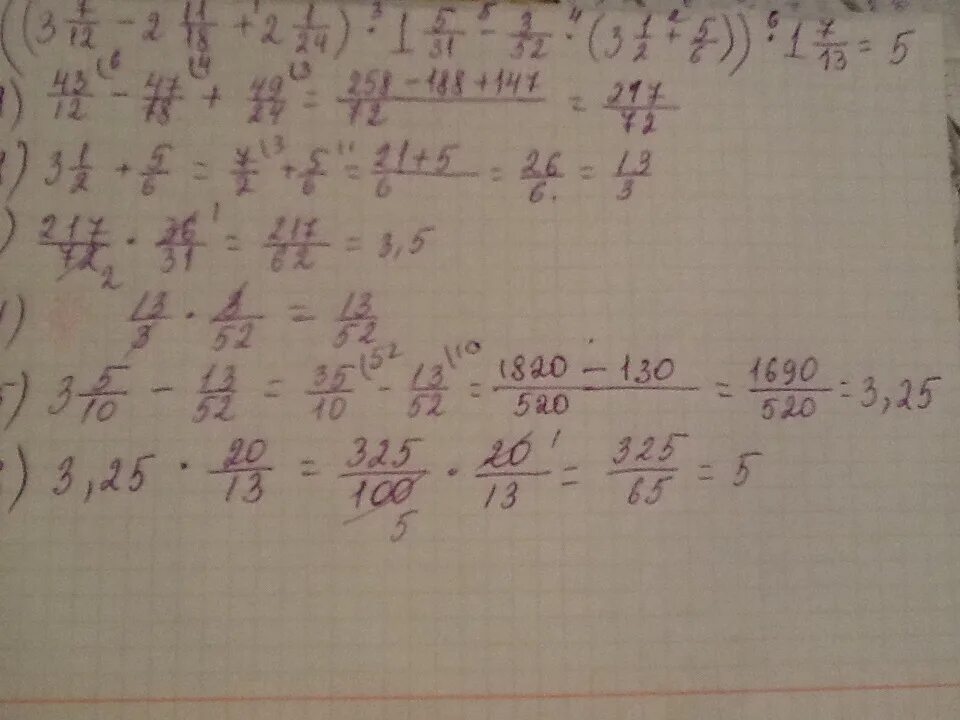 ((3 7/12 - 2 11/18 + 2 1/24) · 1 5/31 - 3/52 · (3 1/2 + 5/6)) · 1 7/13 = 5
) 43/12 - 47/18 + 49/24 = 258 - 188 + 147/72 = 217/72
) 3 1/2 + 5/6 = 7/2 + 5/6 = 21 + 5/6 = 26/6 = 13/3
) 217/72 · 36/31 = 217/62 = 3,5
) 13/3 · 3/52 = 13/52
5) 3 5/10 - 13/52 = 35/10 - 13/52 = 1820 - 130/520 = 1690/520 = 3,25
) 3,25 · 20/13 = 325/100 · 20/13 = 325/65 = 5